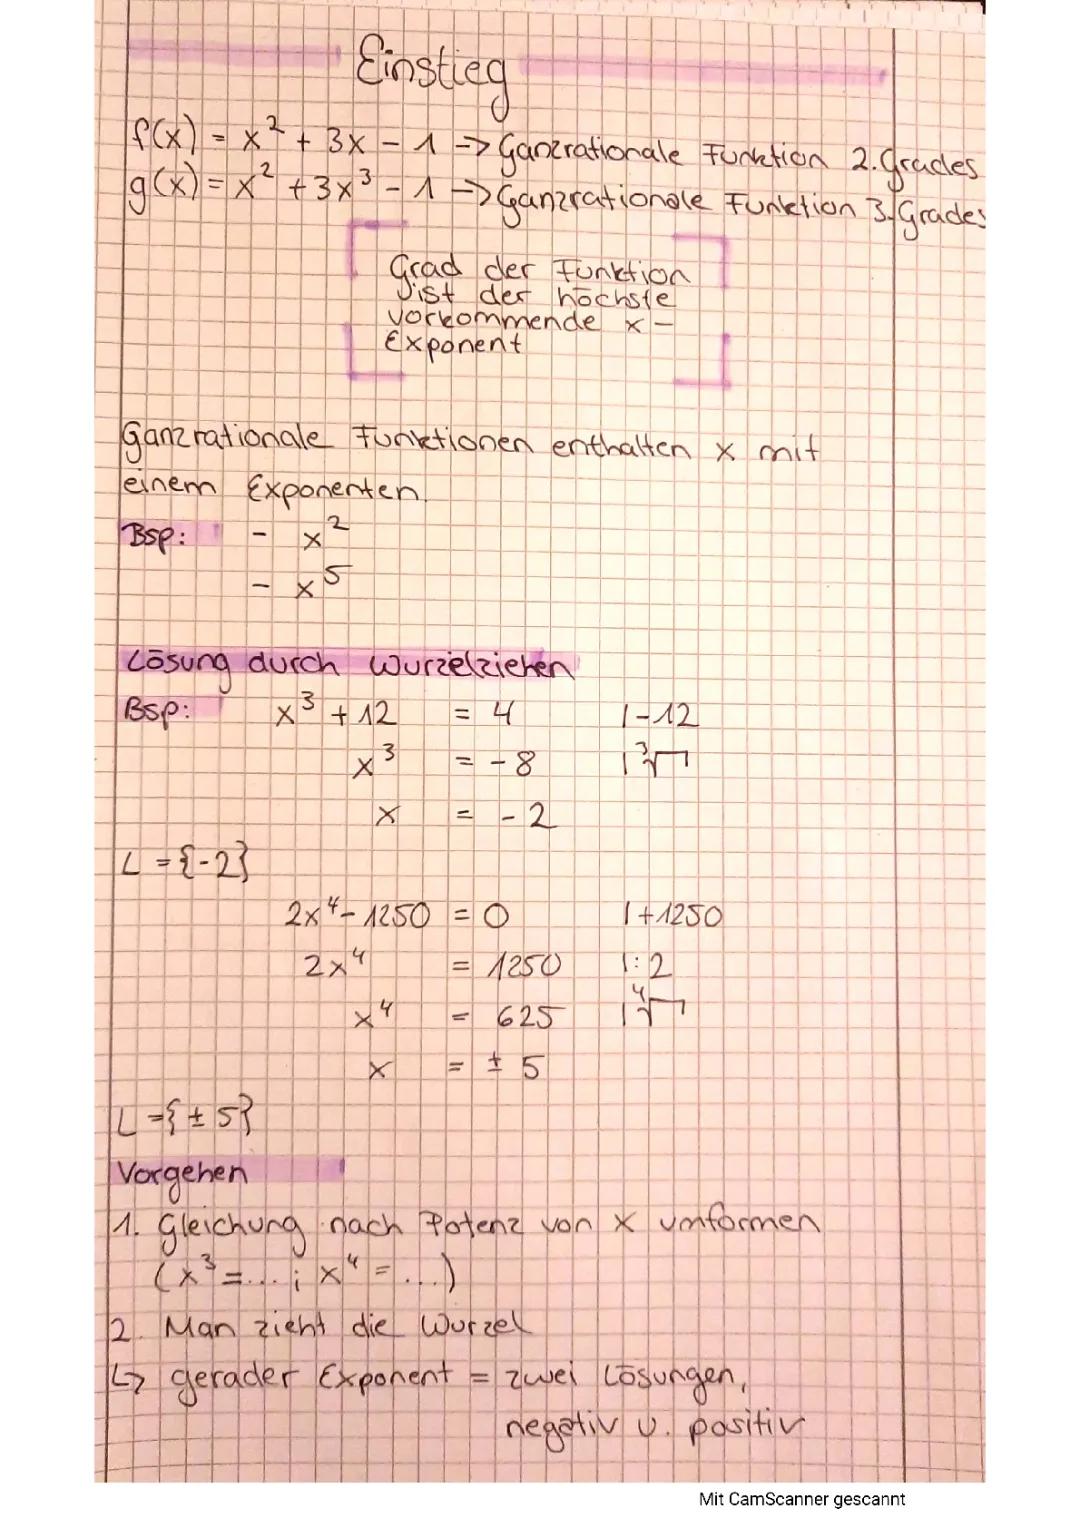 Einstieg
f(x) = x² + 3x - 1 -> Ganzrationale Funktion 2. Grades
g(x) = x² + 3x³ - 1 -> Ganzrationale Funktion 3. Grades
Grad der Funktion
ist der höchste
vorkommende x-
Exponent
Ganzrationale Funktionen enthalten x mit
einem Exponenten.
Bsp: - x²
- x⁵
Lösung durch Wurzelziehen
Bsp: x³ + 12 = 4 |-12
x³ = -8 |³√
x = -2
L = {-2}
2x⁴ - 1250 = 0 |+1250
2x⁴ = 1250 |:2
x⁴ = 625 |⁴√
x = ± 5
L = {± 5}
Vorgehen
1. Gleichung nach Potenz von x umformen
(x³ = ... ; x⁴ = ...)
2. Man zieht die Wurzel
↳ gerader Exponent = zwei Lösungen,
negativ u. positiv
Mit CamScanner gescannt